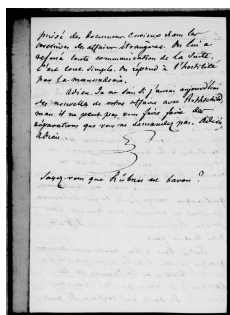 puisé des documens curieux dans les
archives des affaires étrangères. On lui a
refusé toute communication de la suite.
C'est tout simple. On répond à l'hostilité
par la mauvaise
Adieu. Je ne sais si j'aurai aujourd'hui
des nouvelles de votre affaire avec Rothschild,
mais il ne peut pas vous faire faire des
réparations que vous ne demandez pas. Adieu,
Adieu.
Savez-vous que Hübner est baron ?